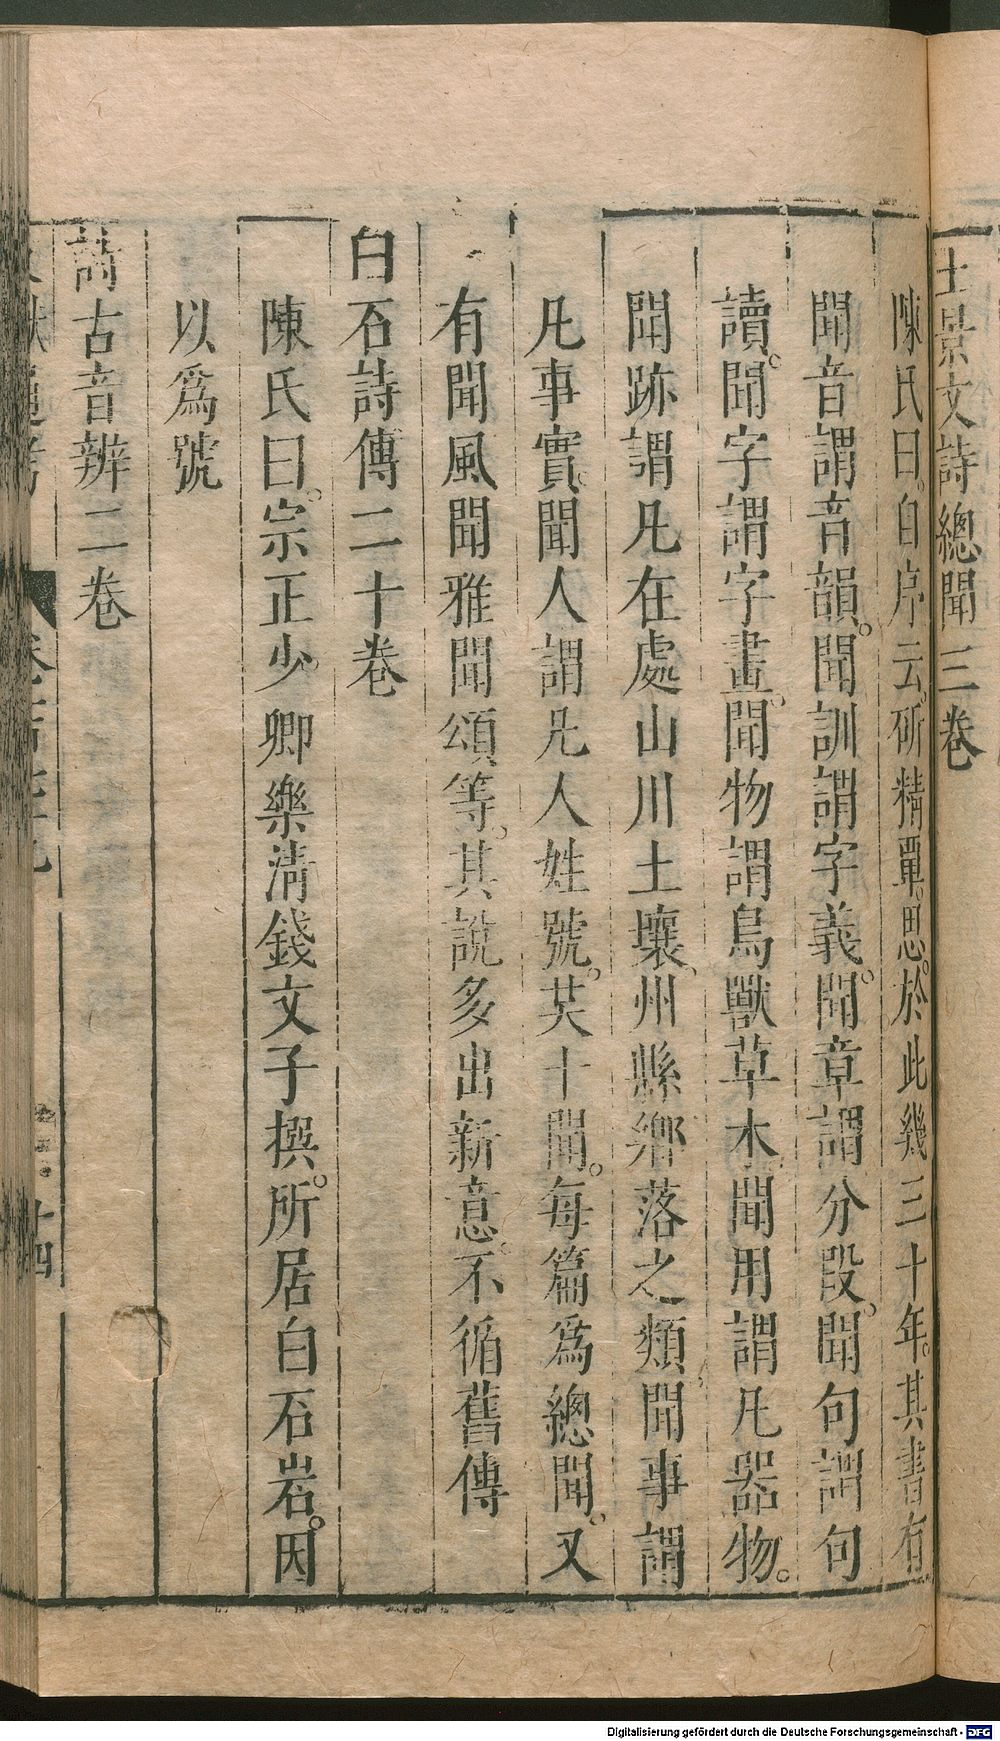 王景文詩總聞三卷
陳氏曰自序云研精覃思。於此幾三十年。其書有
聞音謂音韻。聞訓謂字義。聞章謂分段。聞句謂句
讀。聞字謂字畫。聞物謂鳥獸草木。聞用謂凡器物。
聞跡謂凡在處山川土壤、州縣鄉落之類。聞事謂
凡事實。聞人謂凡人姓號。共十聞。每篇爲總聞。又
有聞風聞雅聞頌等。其說多出新意。不循舊傳
白石詩傳二十卷
陳氏曰。宗正少卿樂清錢文子撰。所居白石岩。因
以爲號
詩古音辨二卷
十四
Digitalisierung gefördert durch die Deutsche Forschungsgemeinschaft - DFG